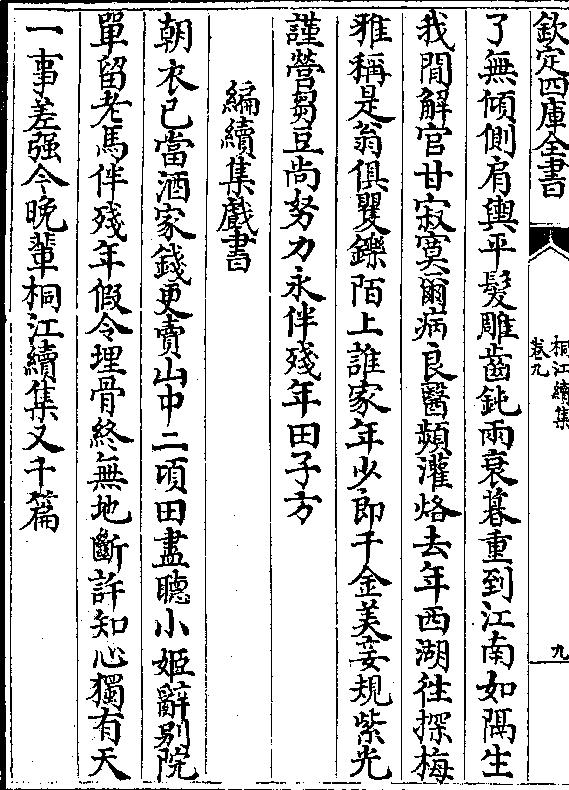 欽定四庫全書
桐江續集
卷九
九
了無傾側肩輿平髮雕齒鈍雨衰暮重到江南如隔生
我間解官甘寂寞爾病良醫頻灌烙去年西湖往探梅
雅稱是翁俱矍鑠陌上誰家年少郎千金美妾規紫光
謹營芻豆尚努力永伴殘年田子方
編續集戲書
朝衣已當酒家錢更賣山中二頃田盡聽小姬辭別院
單留老馬伴殘年假令埋骨終無地斷許知心獨有天
一事差强今晚輩桐江續集又千篇